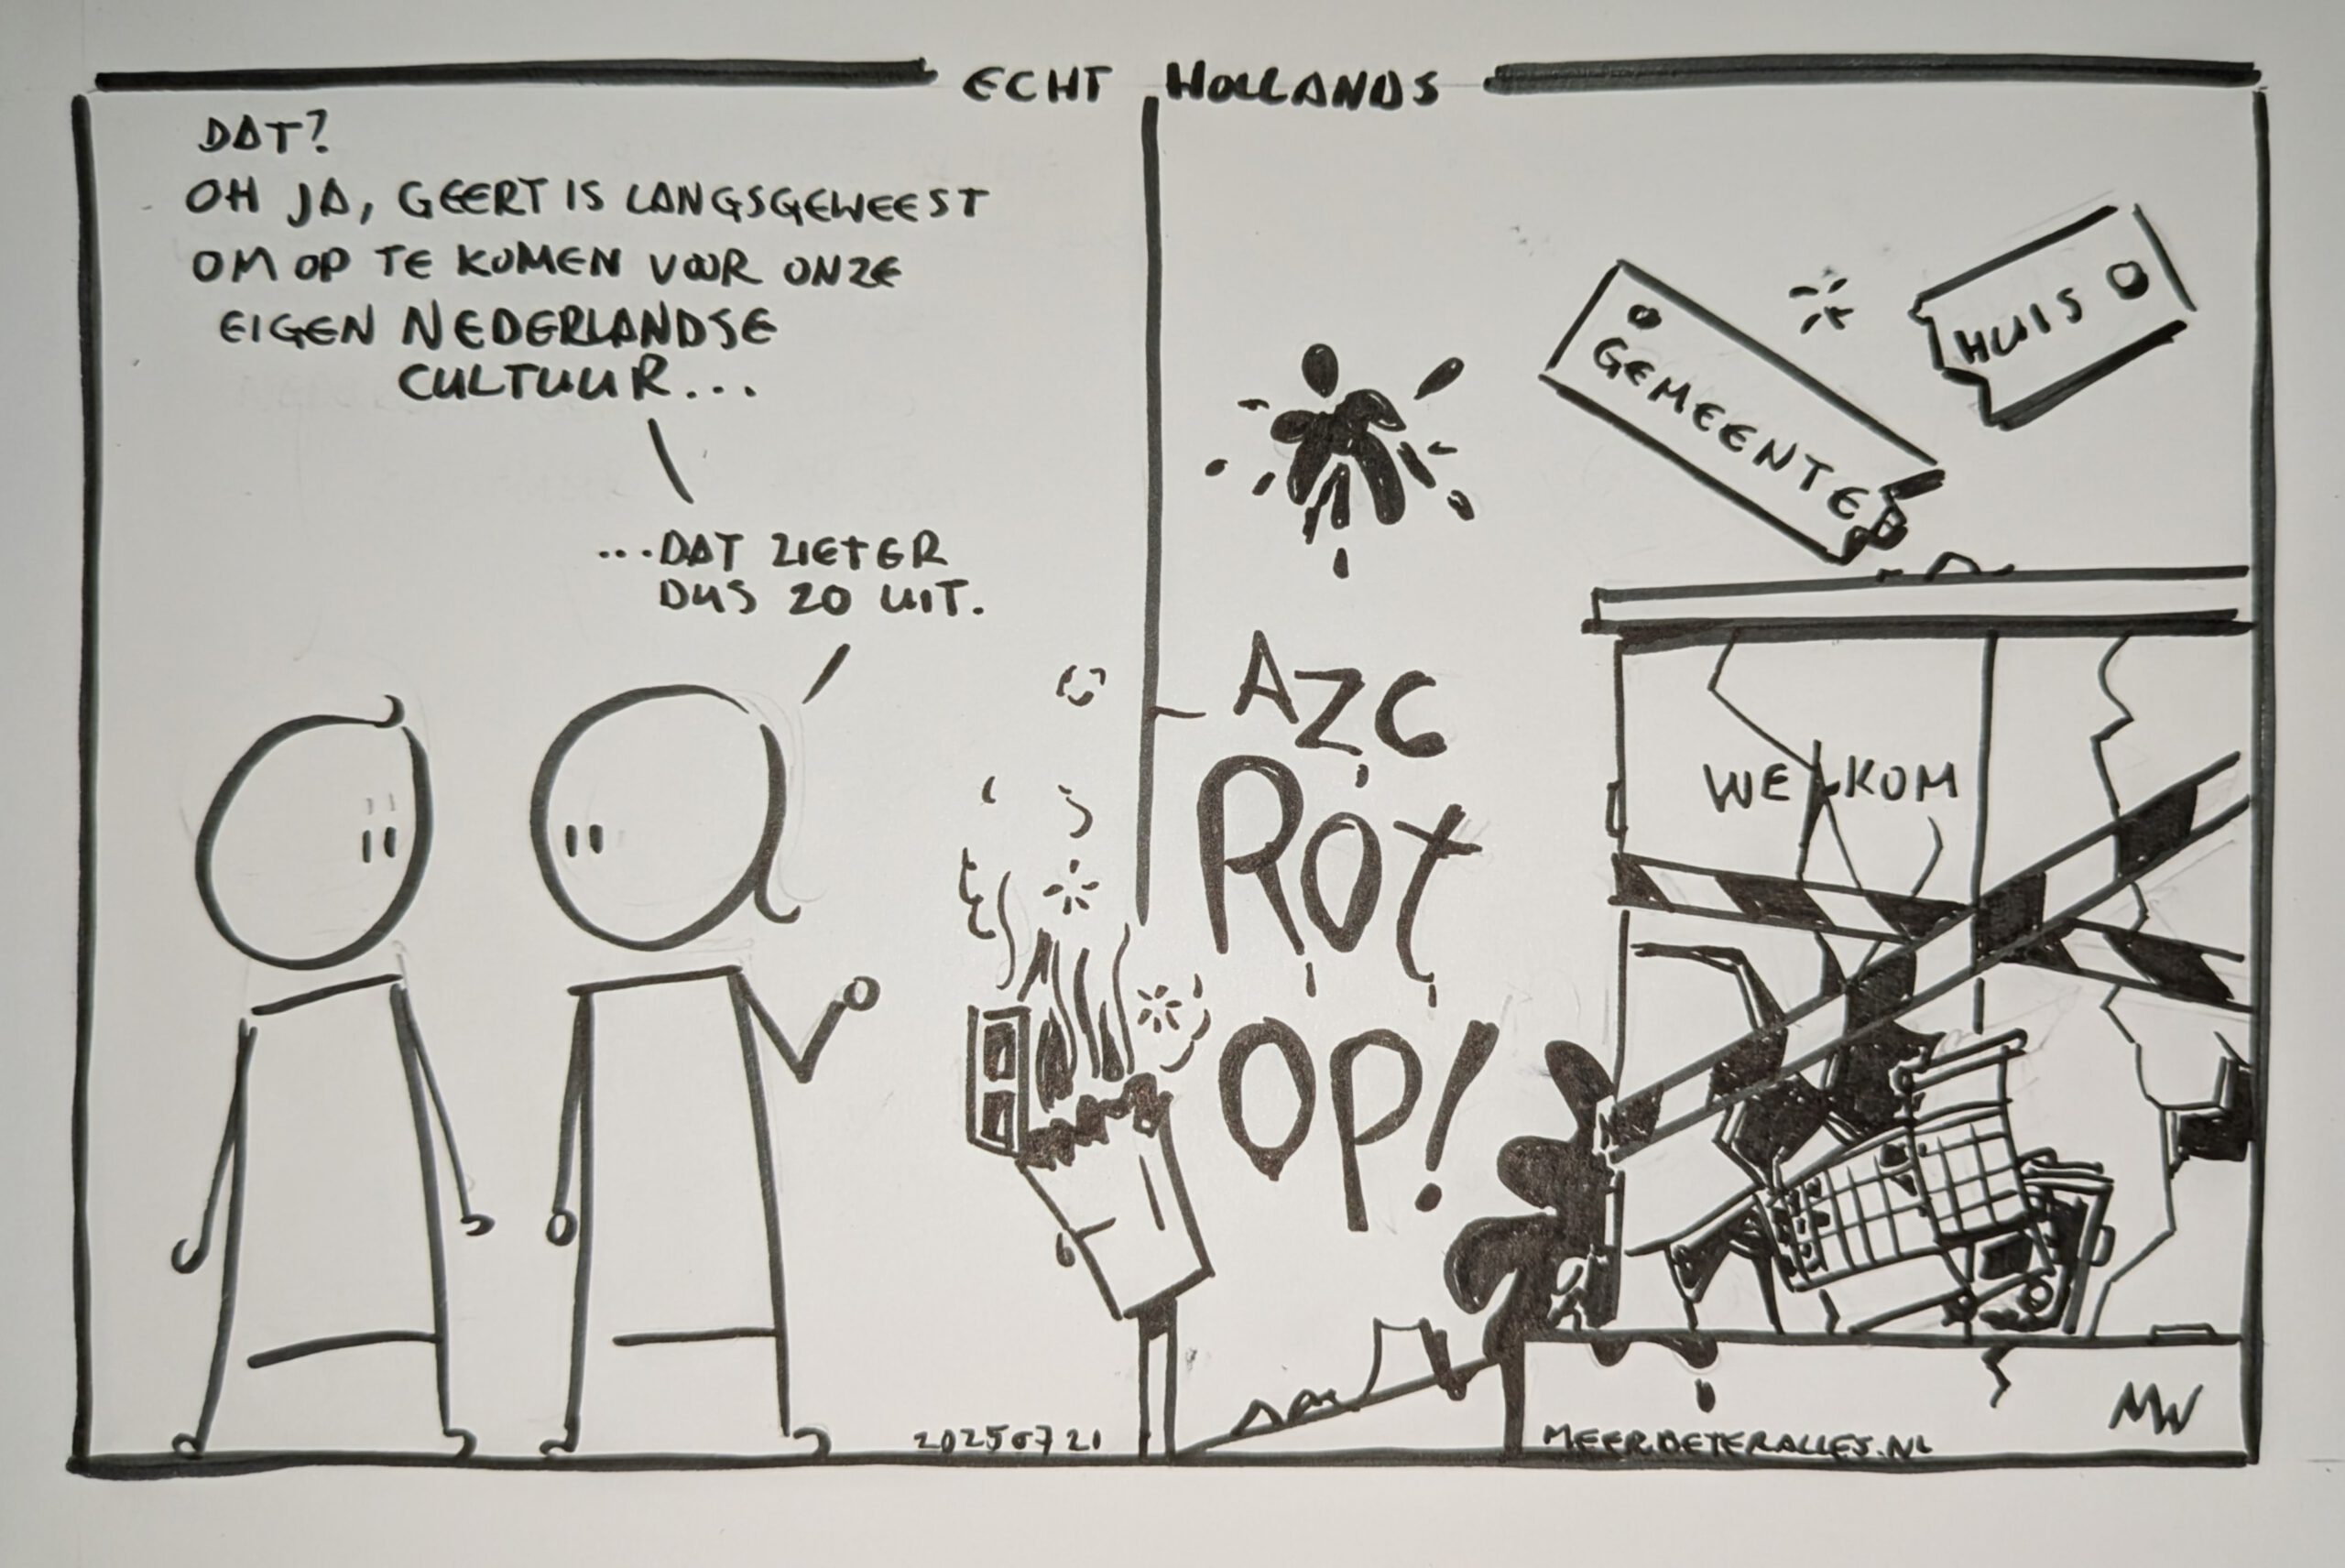 ECHT HOLLANDS
DAT?
OH JA, GEERT IS LANGSGEWEEST
OM OP TE KOMEN VOOR ONZE
EIGEN NEDERLANDSE
CULTUUR...
...DAT ZIET ER
DUS ZO UIT.
GEMEENTE
HUIS
AZC
ROT
OP!
WE KOM
20250721
MEERBETERALLES.NL
MW